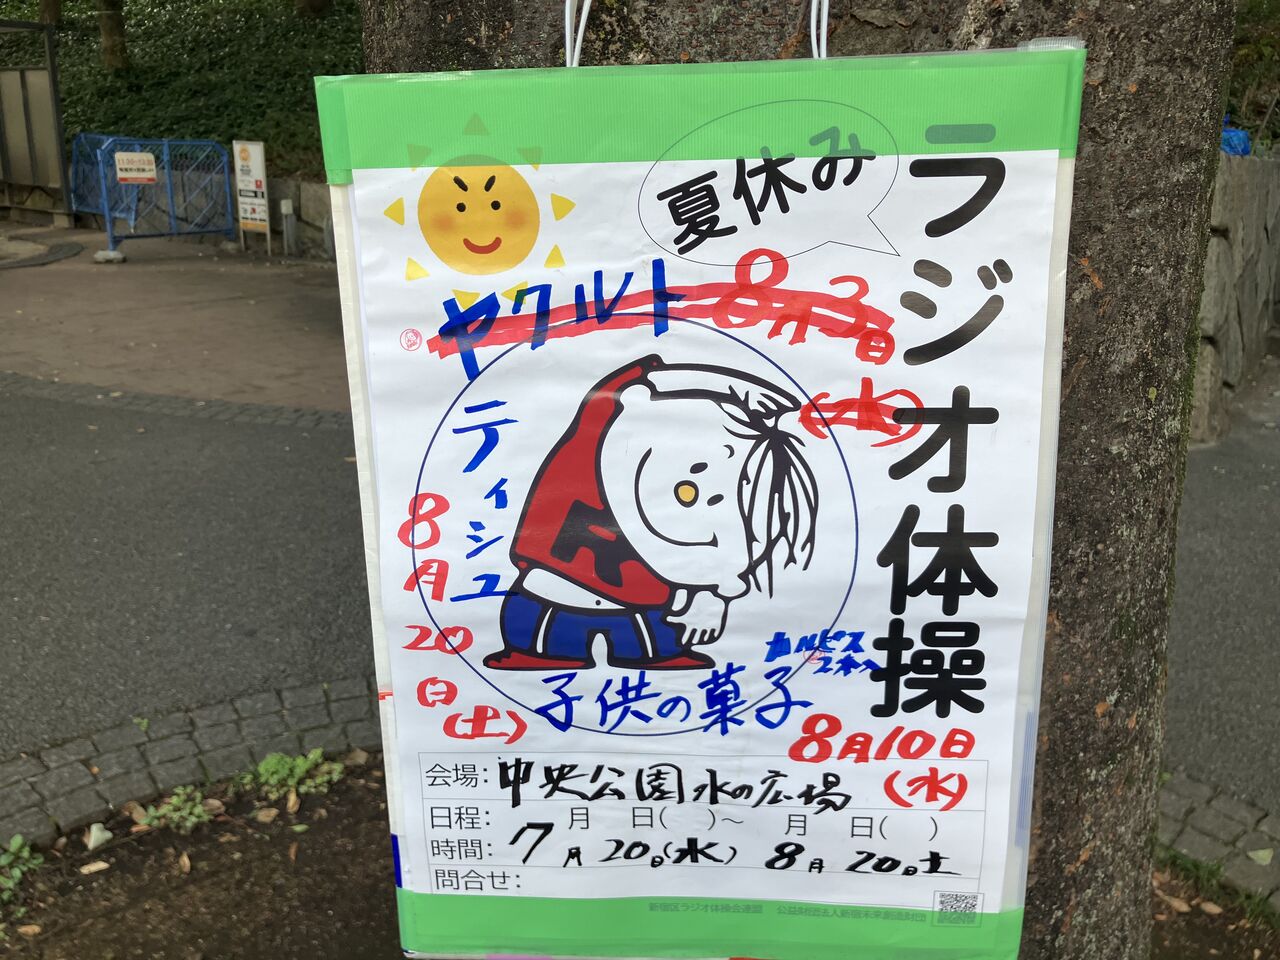 ラジオ体操
夏休み
ヤクルト 8月3日
(水)
ティシュ
8月
20
日
(土)
カルピス
2本入
子供の菓子
8月10日
(水)
会場: 中央公園水の広場
日程: 月 日( )～ 月 日( )
時間: 7月20日(水) 8月20日土
問合せ:
新宿区ラジオ体操会連盟 公益財団法人新宿未来創造財団